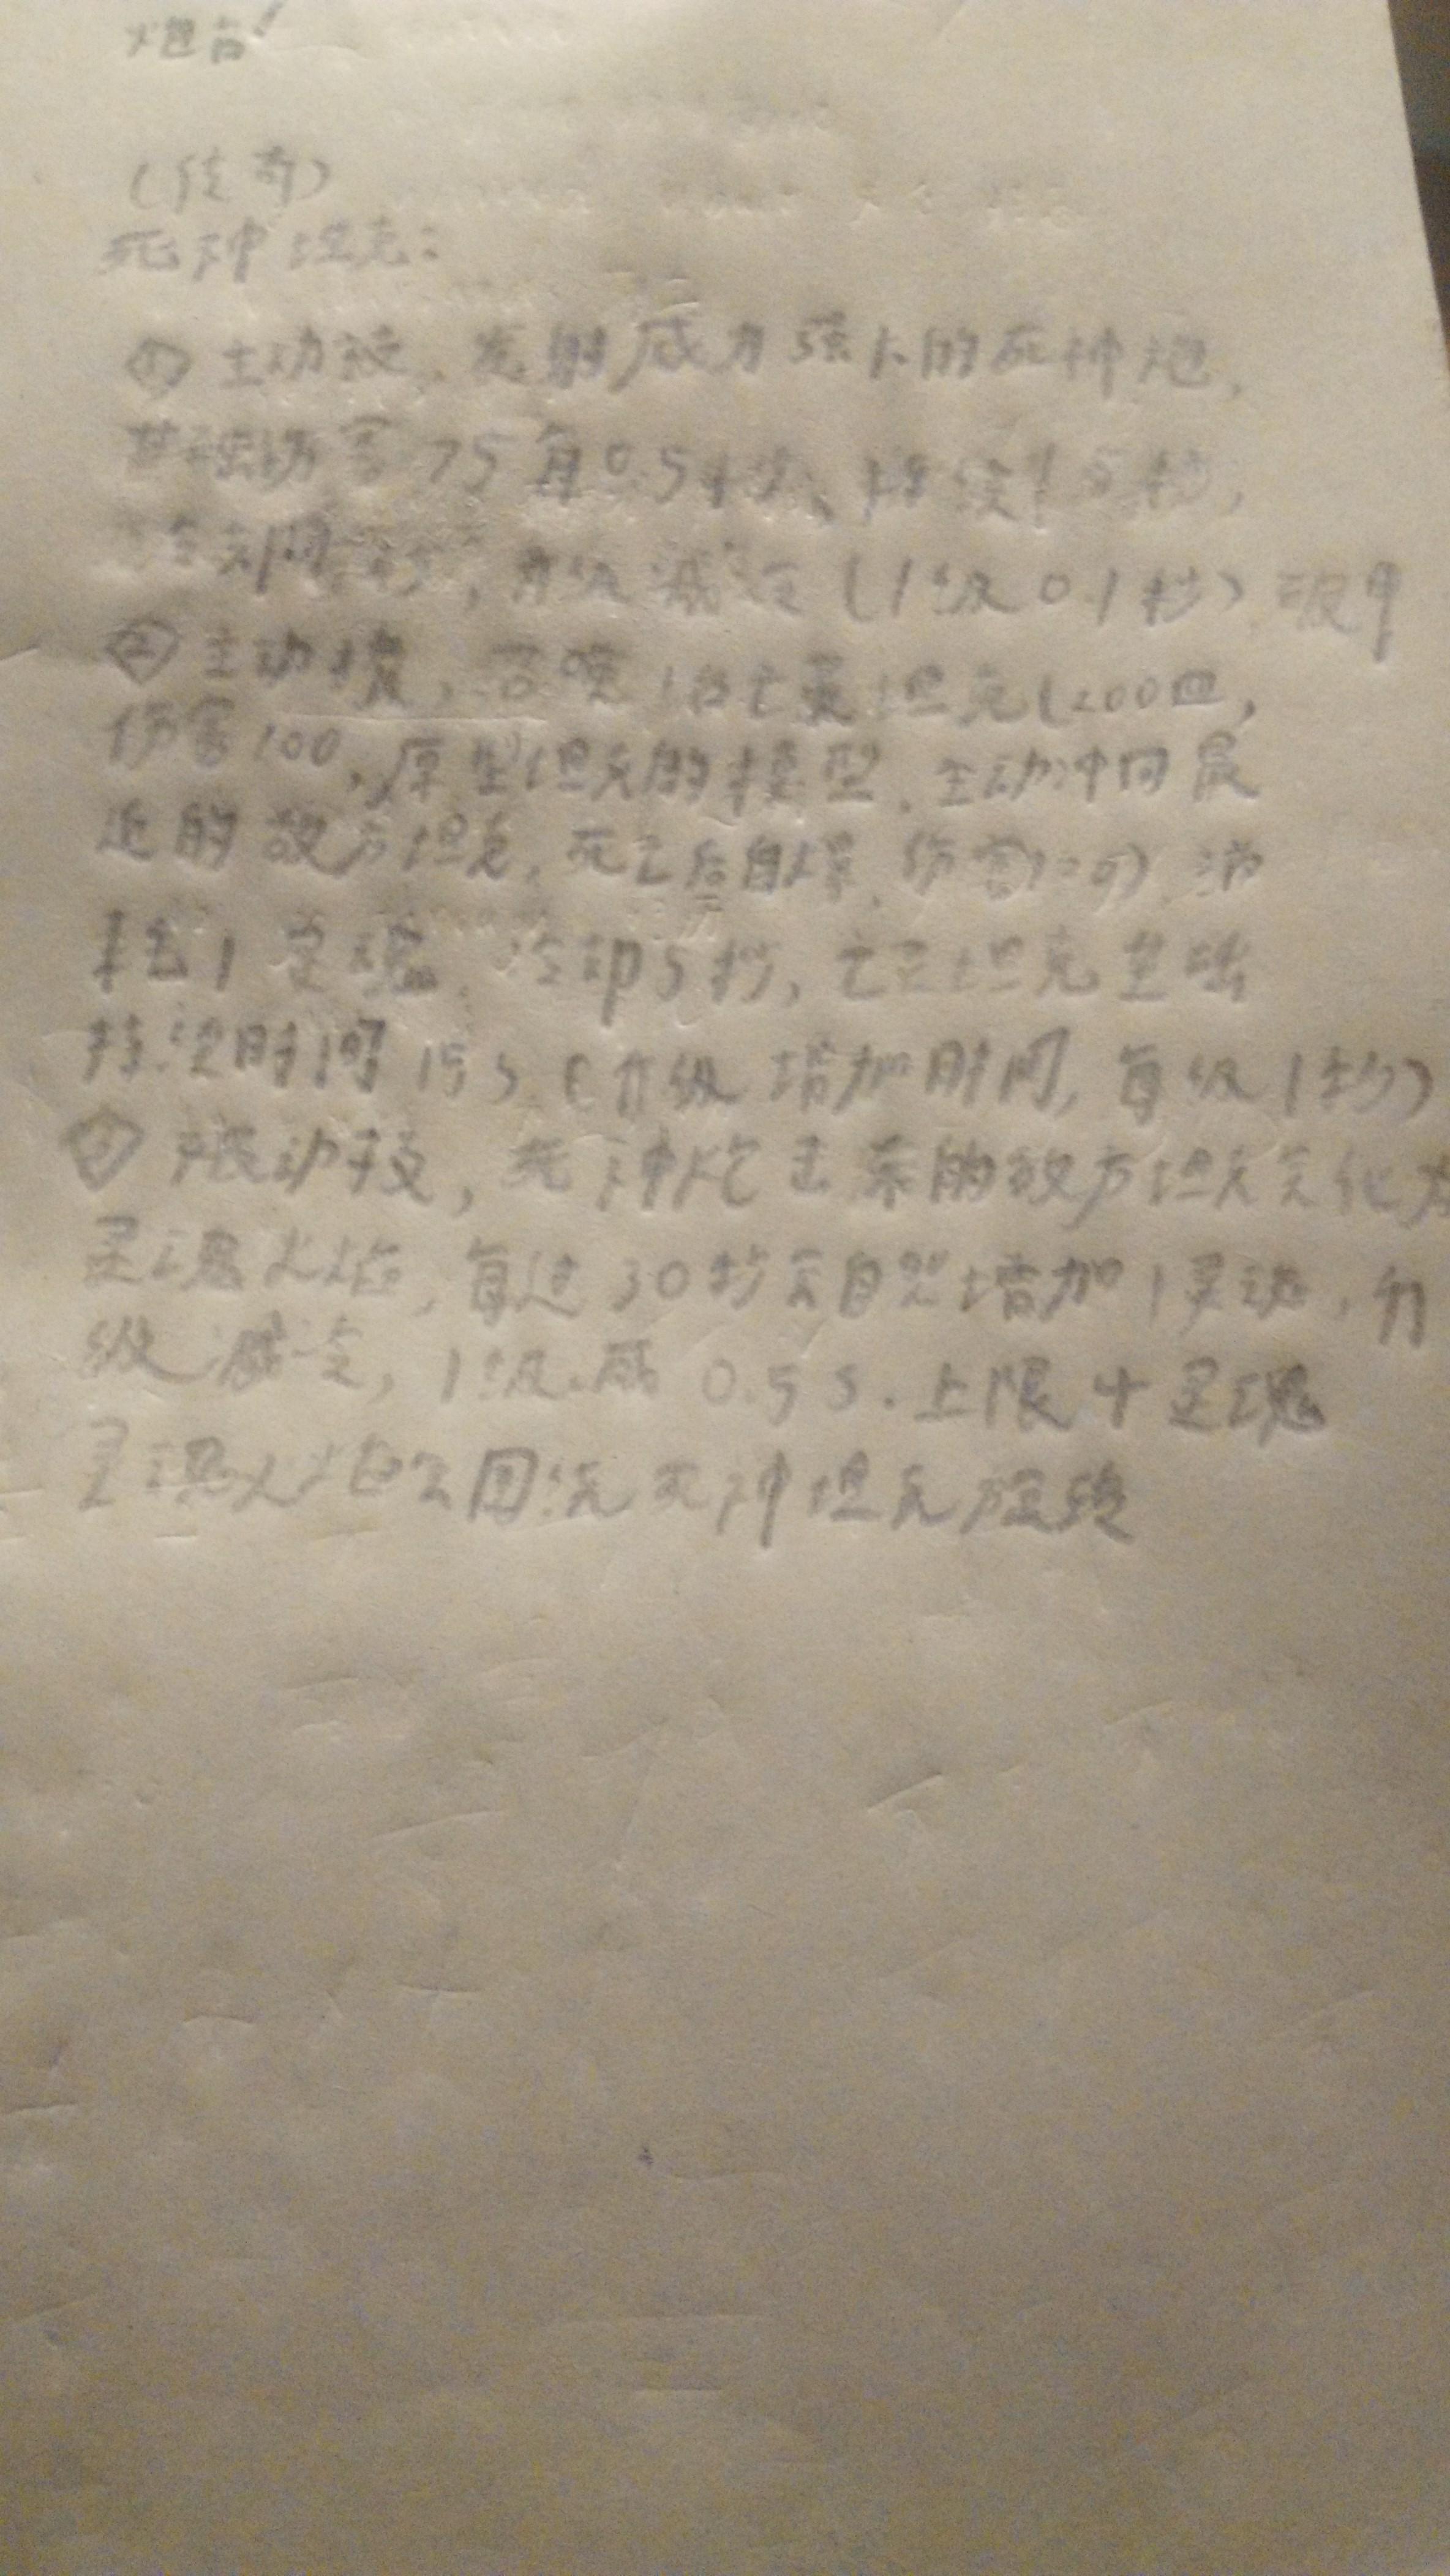 炮台!
(传奇)
死神坦克:
① 主动技,发射威力强大的死神炮,
基础伤害75每0.5秒,持续1.5秒,
冷却 秒,升级减冷(1级0.1秒) 破甲
② 主动技,召唤1台亡灵坦克(200血,
伤害100,原型坦克的模型,主动冲向最
近的敌方坦克,死亡后自爆,伤害 ) 消
耗1灵魂,冷却5秒,亡灵坦克基础
持续时间15s(升级增加时间,每级1秒)
③ 被动技,死神炮击杀的敌方坦克会化为
灵魂火焰,每过30秒会自然增加1灵魂,升
级减冷,1级减0.5s.上限4灵魂
灵魂火焰会围绕死神坦克旋转